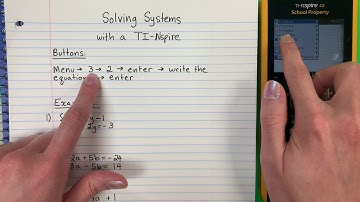 Solving Systems
with a TI-Nspire
Buttons:
Menu → 3 → 2 → enter → write the
equation → enter
Exa
1) S y-1
2y=-3
2a + 5b = -24
3a - 5b = 14
a + 1
TI-nspire CX
School Property